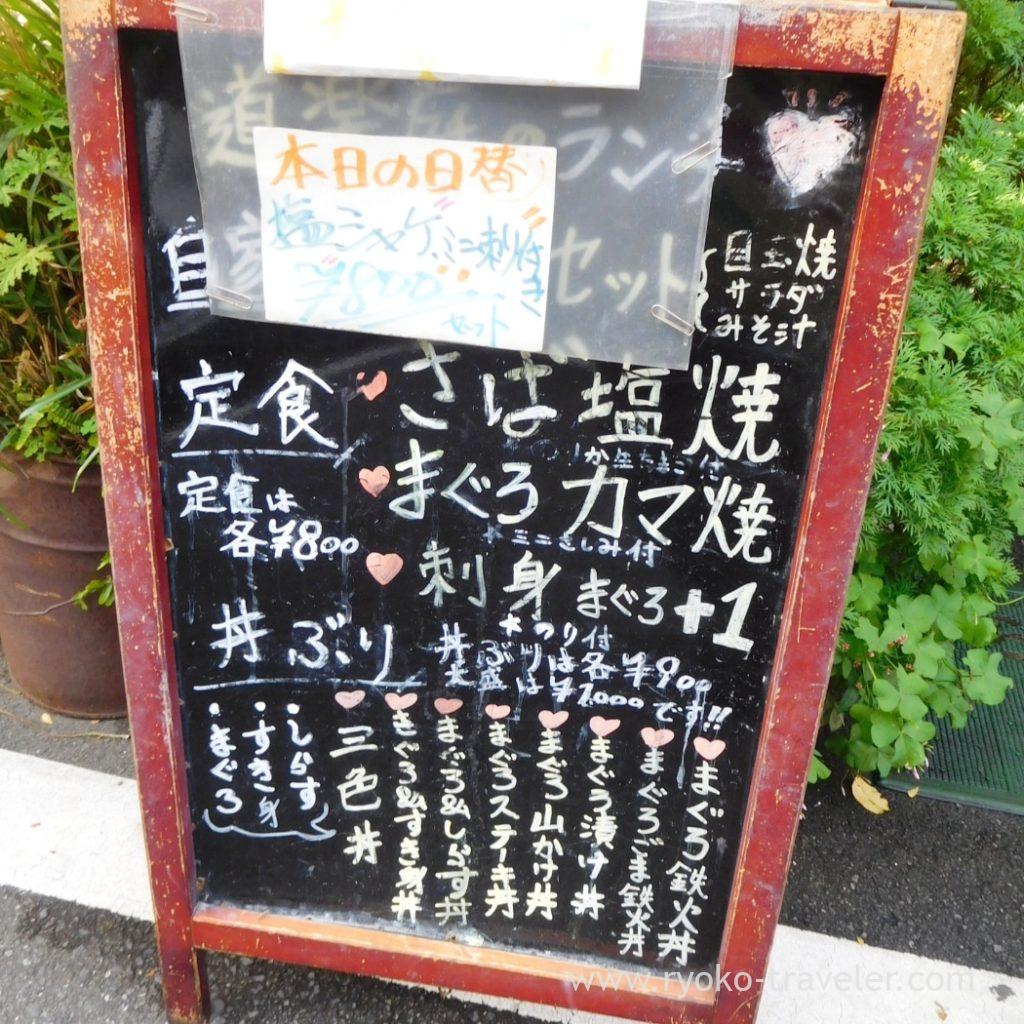 道楽庵のランチ
本日の日替り
塩シャケ、ミニ刺付き
¥800
セット
自家
セット
玉子焼
サラダ
みそ汁
定食
さば塩焼
定食は
各¥800
まぐろカマ焼
*ミニさしみ付
刺身まぐろ+1
丼ぶり
*つり付
丼ぶりは各¥900
大盛は¥1000です!!
まぐろ鉄火丼
まぐろごま鉄火丼
まぐろ漬け丼
まぐろ山かけ丼
まぐろステーキ丼
まぐろ&しらす丼
まぐろ&すき身丼
三色丼
・しらす
・すき身
・まぐろ
www.ryoko-traveler.com